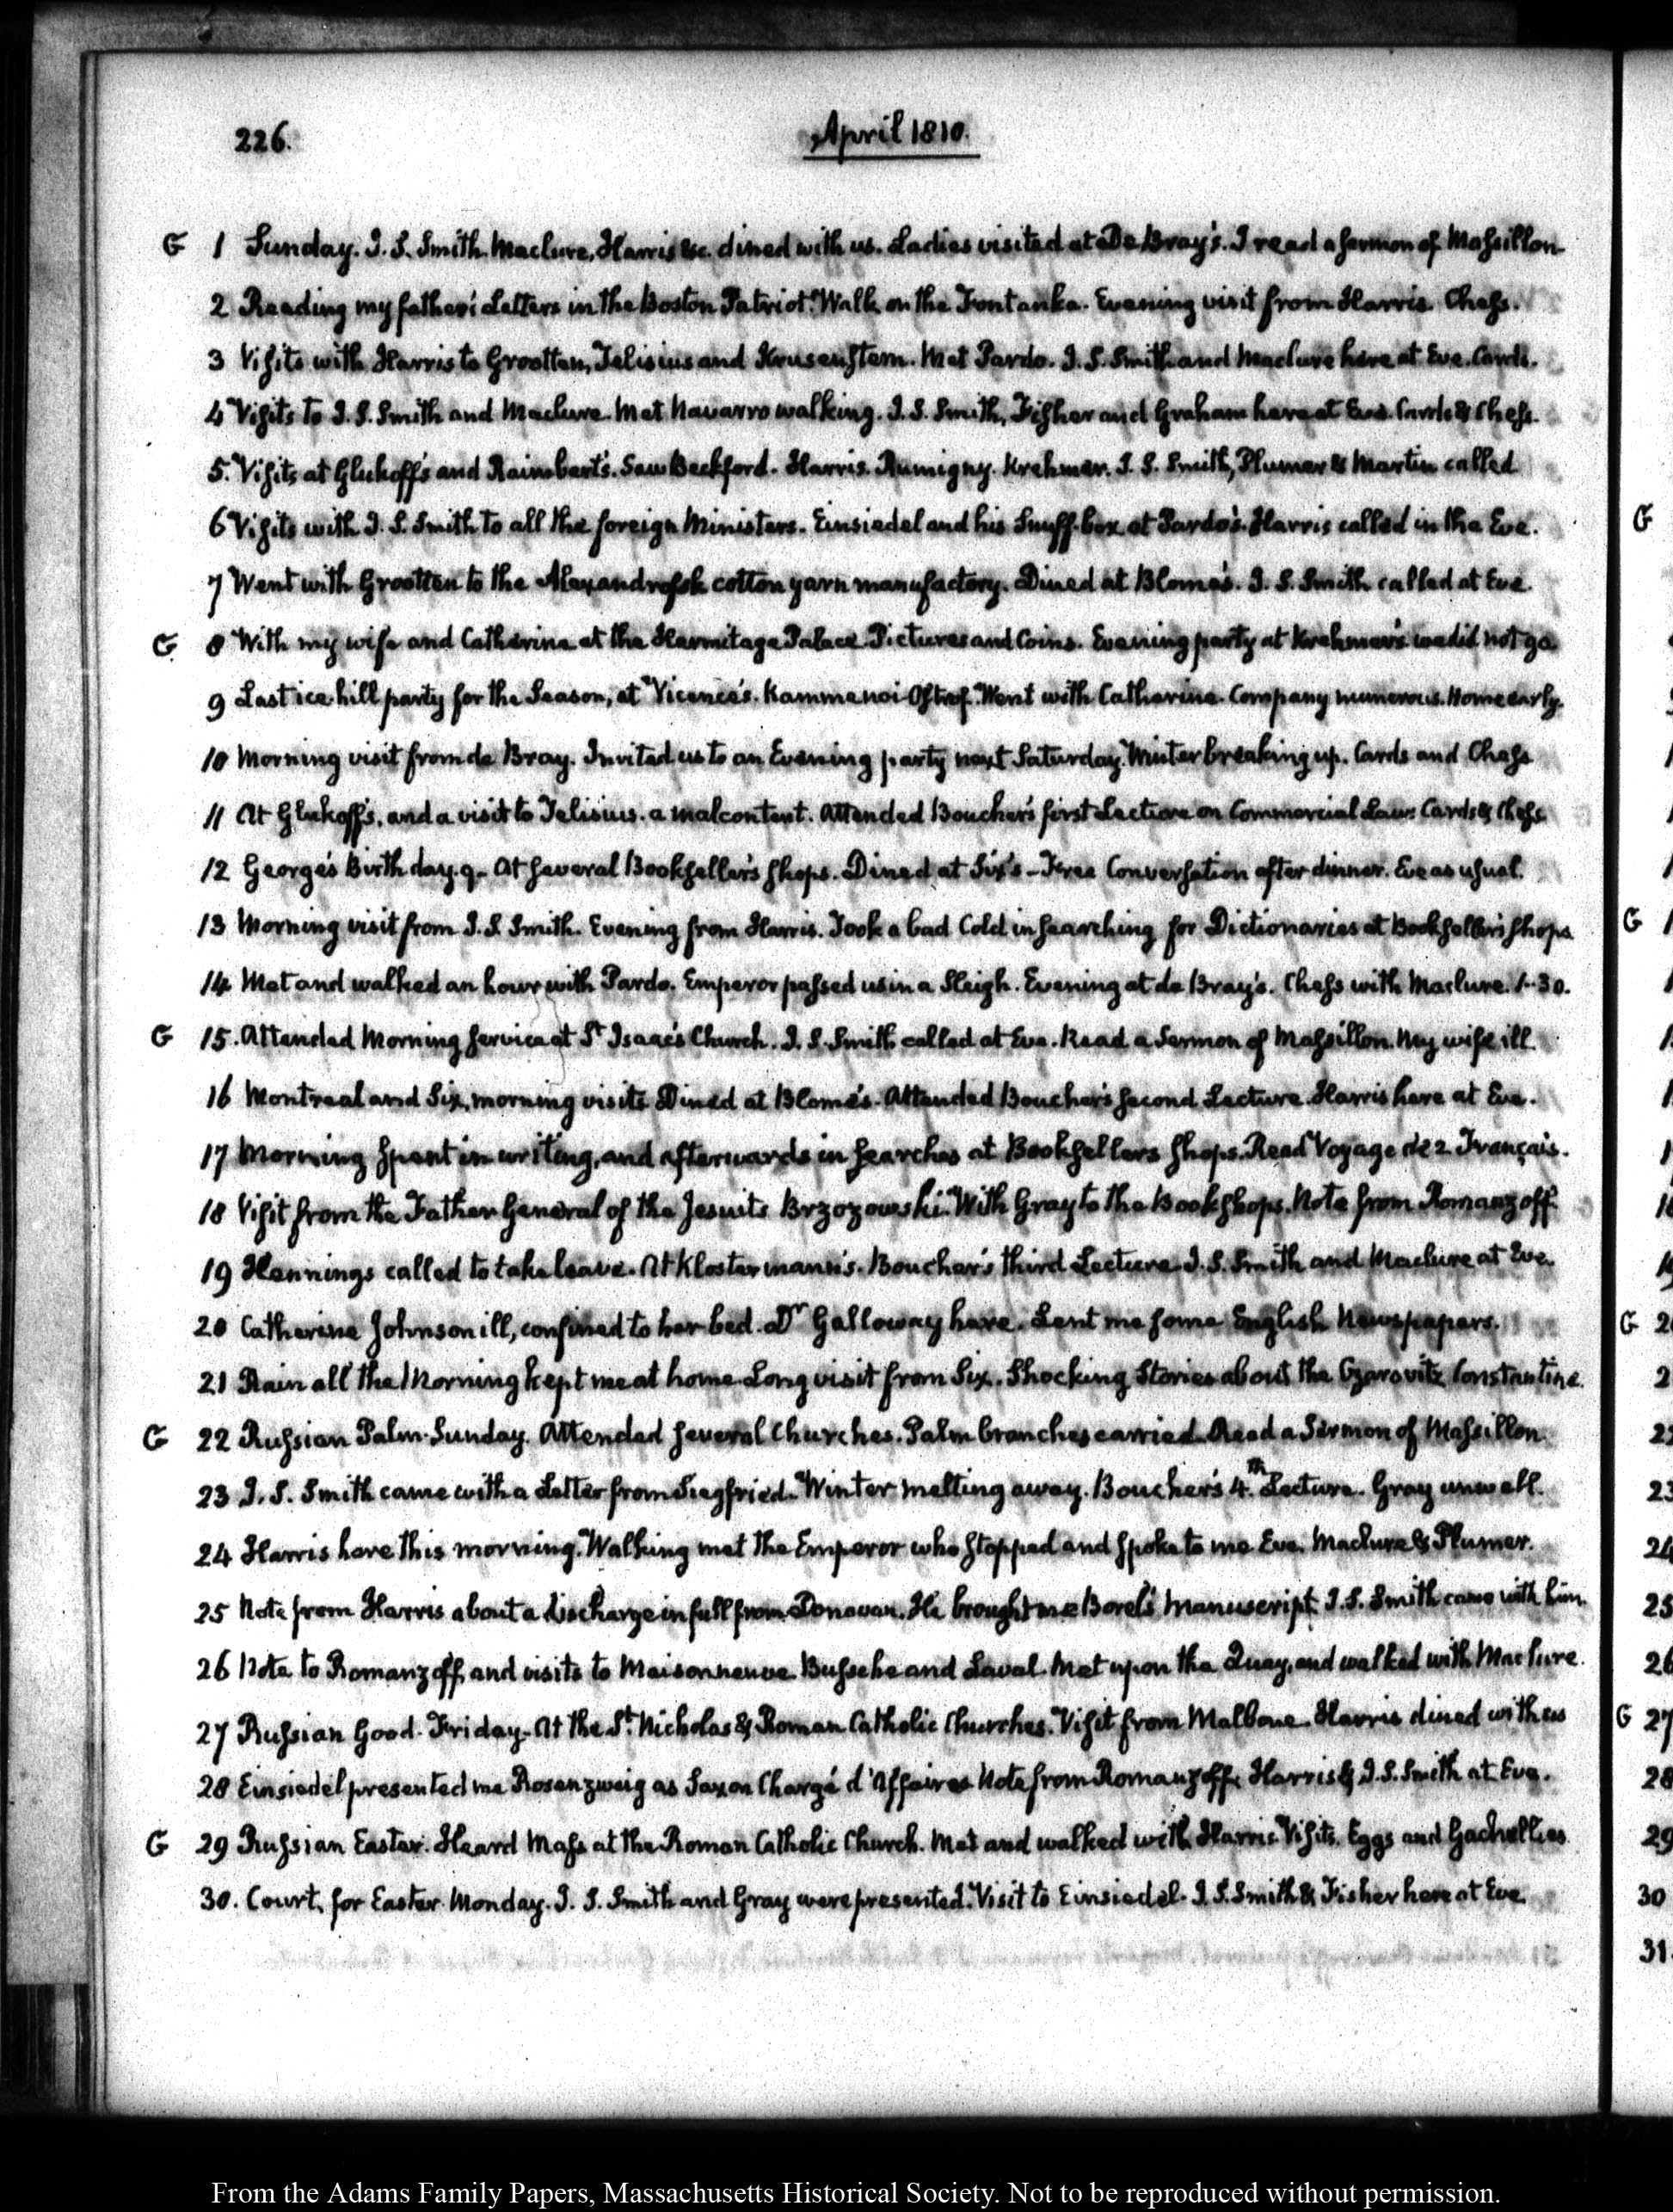 226.
April 1810.
G 1 Sunday. J. S. Smith. Maclure, Harris &c. dined with us. Ladies visited at De Bray's. I read a sermon of Massillon.
2 Reading my father's Letters in the Boston Patriot. Walk on the Fontanka. Evening visit from Harris. Chess.
3 Visits with Harris to Grootten, Jelisius and Krusenstern. Met Pardo. J. S. Smith and Maclure here at Eve. Cards.
4 Visits to J. S. Smith and Maclure. Met Navarro walking. J. S. Smith, Fisher and Graham here at Eve. Cards & Chess.
5. Visits at Glukoff's and Rainsbart's. Saw Beckford. Harris. Rumigny. Krehmer. J. S. Smith, Plumer & Martin called
6 Visits with J. S. Smith to all the foreign Ministers. Einsiedel and his Snuff-box at Pardo's. Harris called in the Eve.
7 Went with Grootten to the Alexandrofsk cotton yarn manufactory. Dined at Blome's. J. S. Smith called at Eve.
G. 8 With my wife and Catherine at the Hermitage Palace. Pictures and Coins. Evening party at Krehmer's we did not go
9 Last ice-hill party for the Season, at Vicence's. Kammenoi-Ostrof. Went with Catherine. Company numerous. Home early.
10 Morning visit from de Bray. Invited us to an Evening party next Saturday. Winter breaking up. Cards and Chess
11 At Glukoff's, and a visit to Jelisius. a malcontent. Attended Boucher's first Lecture on Commercial Law. Cards & Chess
12 George's Birth day. 9– At several Bookseller's shops. Dined at Six's – Free Conversation after dinner. Eve as usual.
13 Morning visit from J. S. Smith. Evening from Harris. Took a bad Cold in searching for Dictionaries at Bookseller's shops
14 Met and walked an hour with Pardo. Emperor passed us in a Sleigh. Evening at de Bray's. Chess with Maclure. 1-30.
G 15. Attended Morning service at St Isaac's Church. J. S. Smith called at Eve. Read a Sermon of Massillon. My wife ill.
16 Montreal and Six, morning visits. Dined at Blome's. Attended Boucher's second Lecture. Harris here at Eve.
17 Morning spent in writing, and afterwards in searches at Booksellers shops. Read Voyage de 2 Français.
18 Visit from the Father General of the Jesuits Brzozowski. With Gray to the Bookshops. Note from Romanzoff.
19 Hennings called to take leave. At Klostermann's. Boucher's third Lecture. J. S. Smith and Maclure at Eve.
20 Catherine Johnson ill, confined to her bed. Dr Galloway here. Lent me some English Newspapers.
21 Rain all the Morning kept me at home. Long visit from Six. Shocking Stories about the Czarovitz Constantine.
G 22 Russian Palm-Sunday. Attended several Churches. Palm branches carried. Read a Sermon of Massillon.
23 J. S. Smith came with a Letter from Siegfried. Winter melting away. Boucher's 4.th Lecture. Gray unwell.
24 Harris here this morning. Walking met the Emperor who stopped and spoke to me. Eve. Maclure & Plumer.
25 Note from Harris about a discharge in full from Donovan. He brought me Borel's Manuscript. J. S. Smith came with him.
26 Note to Romanzoff, and visits to Maisonneuve. Bussche and Laval. Met upon the Quay, and walked with Maclure.
27 Russian Good-Friday. At the St. Nicholas & Roman Catholic Churches. Visit from Malbone. Harris dined with us
28 Einsiedel presented me Rosenzweig as Saxon Chargé d'Affaires. Note from Romanzoff. Harris & J. S. Smith at Eve.
G 29 Russian Easter. Heard Mass at the Roman Catholic Church. Met and walked with Harris. Visits. Eggs and
30. Court, for Easter Monday. J. S. Smith and Gray were presented. Visit to Einsiedel. J. S. Smith & Fisher here at Eve.
From the Adams Family Papers, Massachusetts Historical Society. Not to be reproduced without permission.